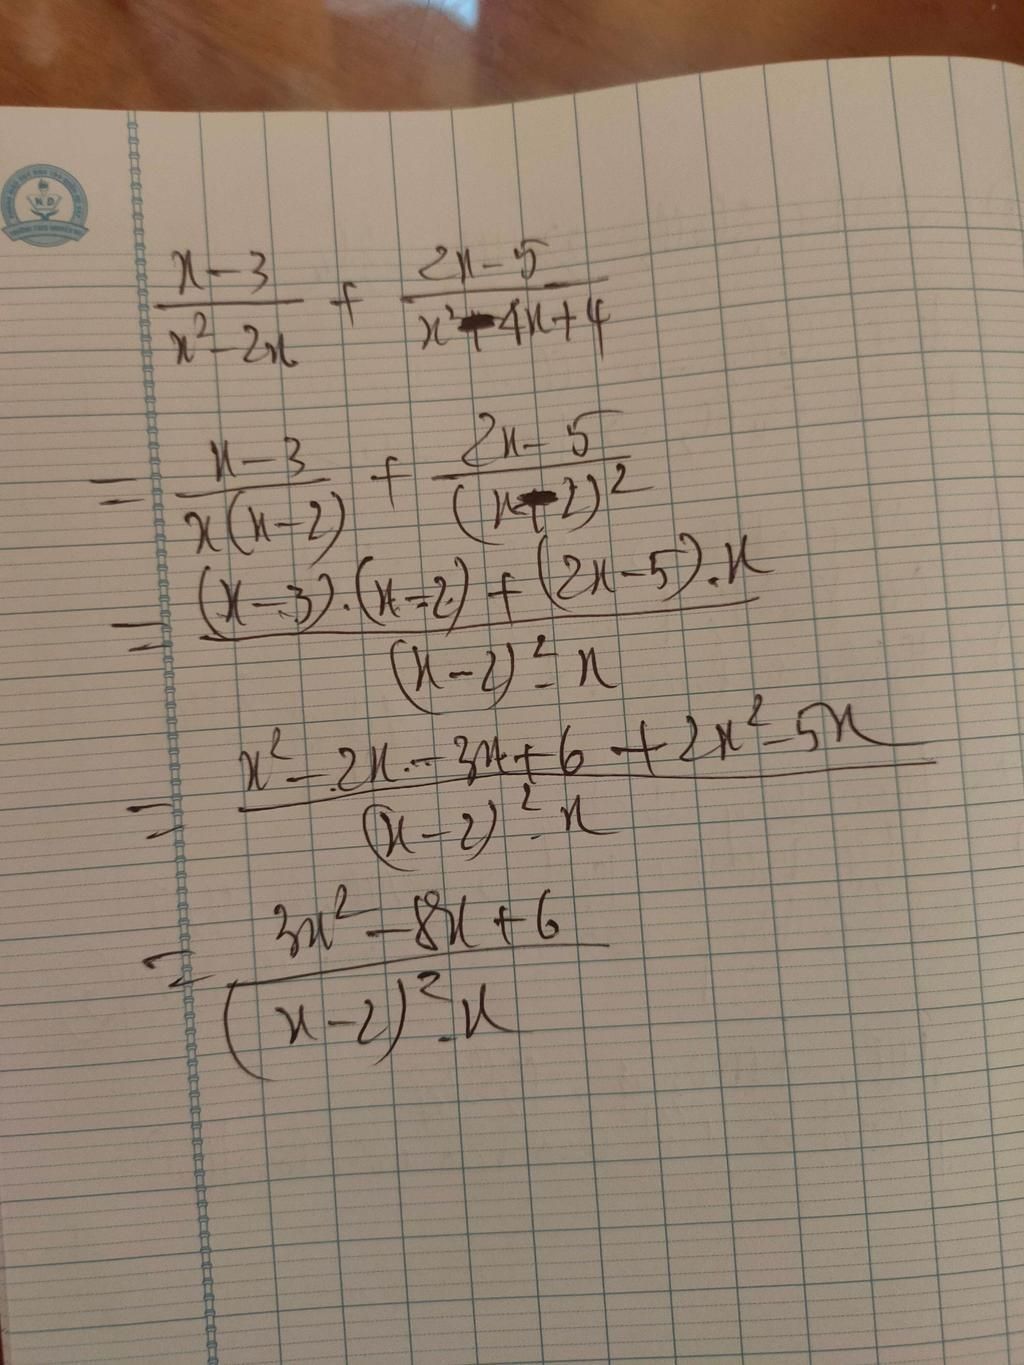 N D
x-3/x²-2x + 2x-5/x²-4x+4
= x-3/x(x-2) + 2x-5/(x-2)²
= (x-3).(x-2) + (2x-5).x/(x-2)².x
= x²-2x-3x+6+2x²-5x/(x-2)².x
= 3x²-8x+6/(x-2)².x